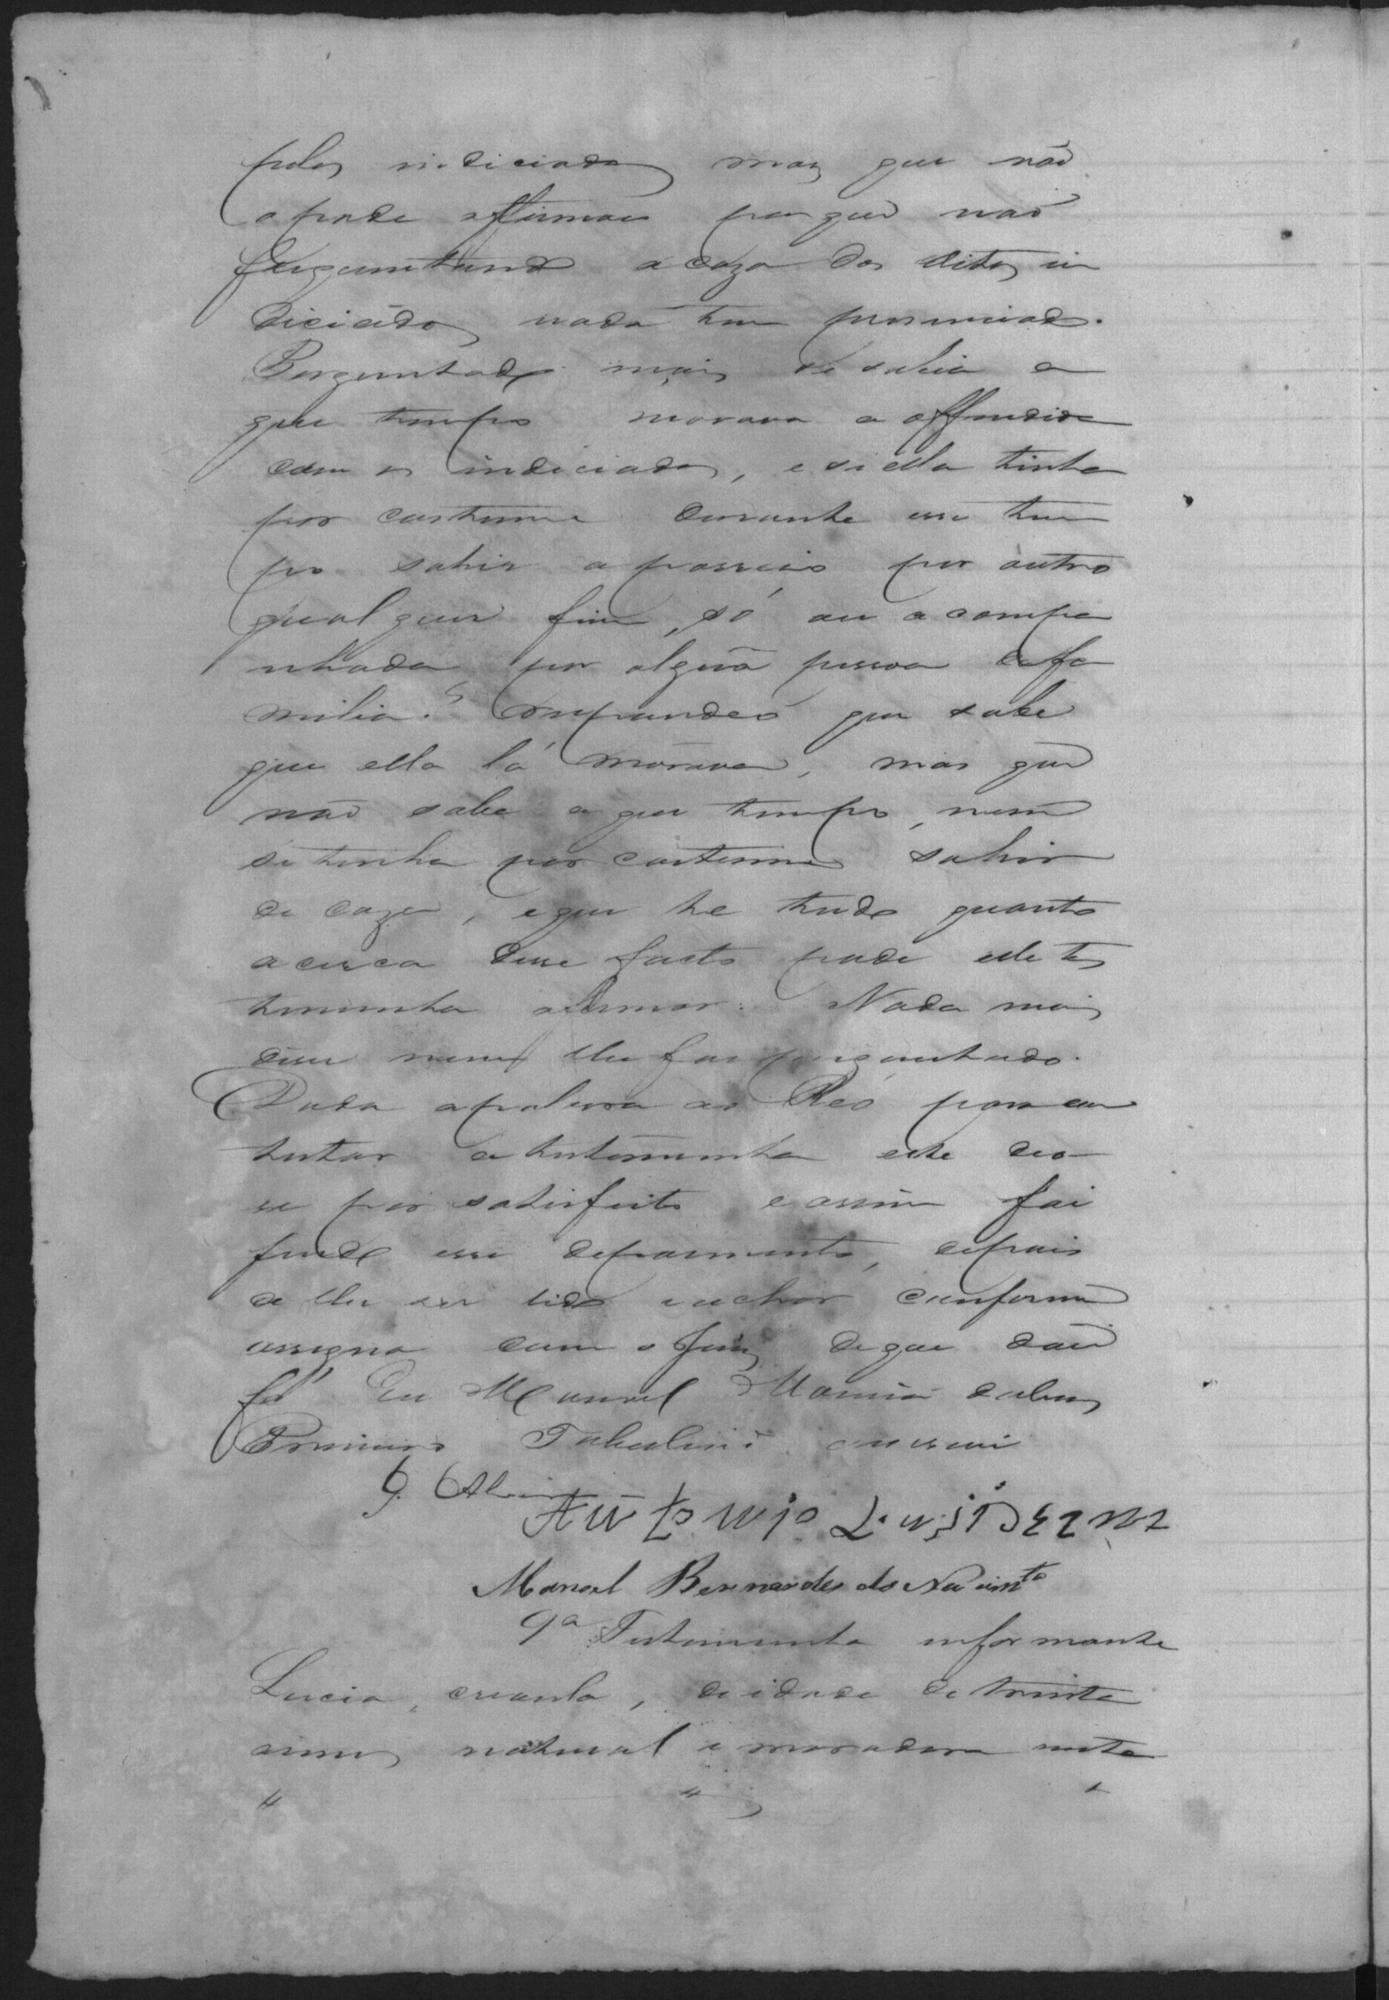 pelos indiciados mas que não
o pode affirmar por que não
frequentando a caza dos ditos in
diciados nada tem presenciado.
Perguntado mais se sabia a
que tempo morava a offendida
com os indiciados, e si ella tinha
por custume durante esse tem
po sahir a passeio por outro
qualquer fim, só ou acompa
nhada por algũa pessoa da fa
milia? Respondeo que sabe
que ella lá morava, mas que
não sabe a que tempo, nem
se tinha por custume sahir
de caza, e que he tudo quanto
acerca desse facto pode elle tes
temunha affirmar. Nada mais
disse nem lhe foi perguntado.
Dada a palavra ao Réo para con
testar a testemunha este deo
se por satisfeito e assim foi
findo esse depoimento, depois
de lhe ser lido e achar conforme
assigna com o Juiz de que dou
fé Eu Manoel
Primeiro Tabelião o escrevi
Antonio Luis
Manoel Bernardes do Nascimto
9ª Testemunha informante
Lucia, escrava, de idade de trinta
annos natural e moradora nesta
" " "